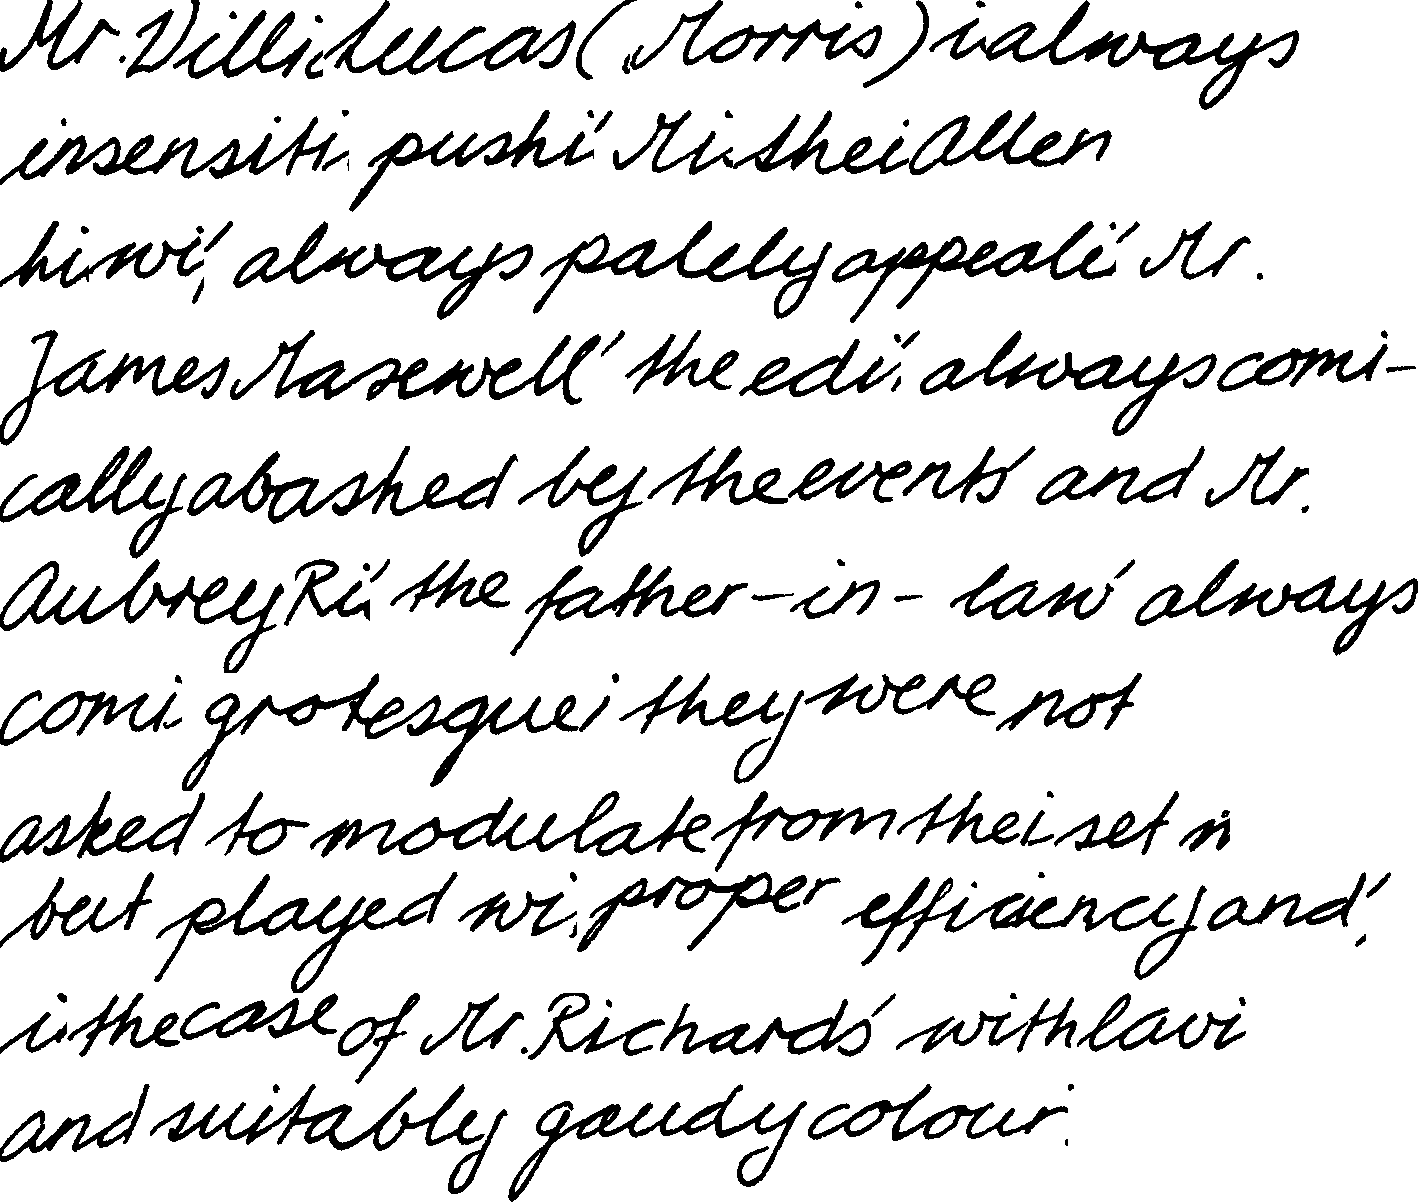 Mr. Lucas (Morris) always
insensiti pushi Allen
always palely appeali Mr.
James Maxwell' the edi. always comi-
cally abashed by the events' and Mr.
Aubrey Ri' the father-in-law' always
comi grotesque they were not
asked to modulate from thei set
but played wi proper efficiency and,
i the case of Mr. Richards' with lavi
and suitably gaudy colour.